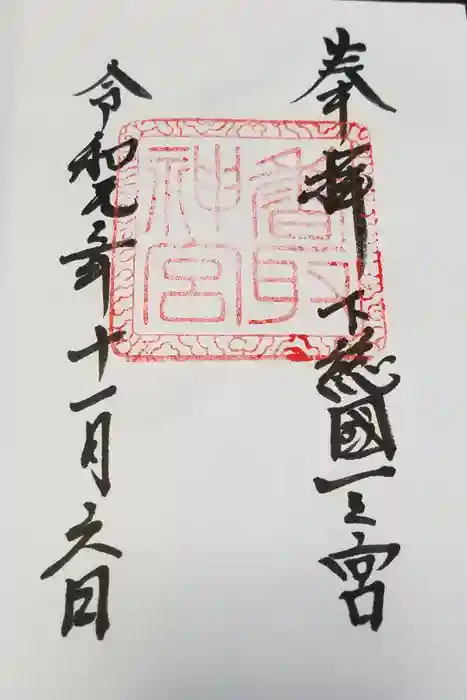 奉拝 下総國一之宮
香取
神宮
令和元年十一月六日